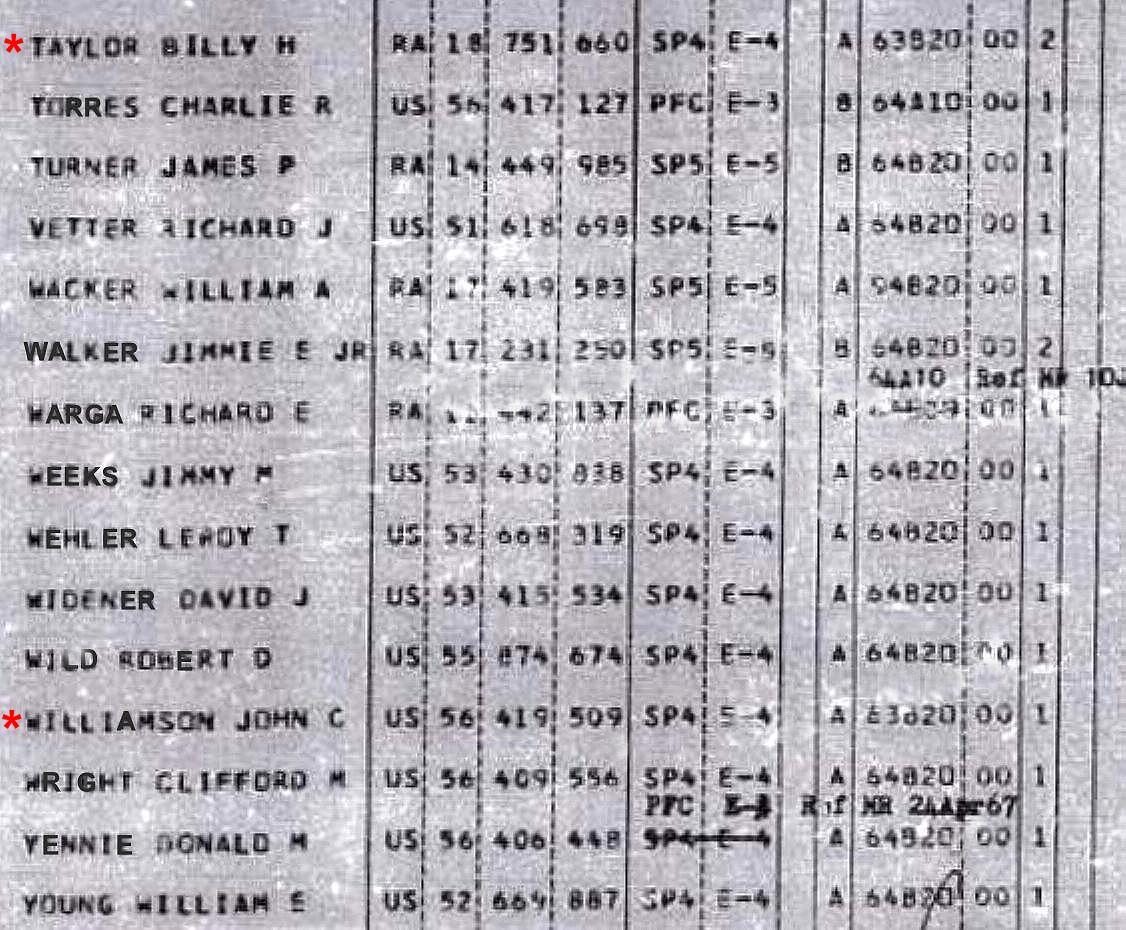 * TAYLOR BILLY H RA 18 751 660 SP4 E-4 A 63B20 00 2
TORRES CHARLIE R US 56 417 127 PFC E-3 B 64A10 00 1
TURNER JAMES P RA 14 449 985 SP5 E-5 B 64B20 00 1
VETTER RICHARD J US 51 618 698 SP4 E-4 A 64B20 00 1
WACKER WILLIAM A RA 17 419 583 SP5 E-5 A 94B20 00 1
WALKER JIMMIE E JR RA 17 231 250 SP5 E-5 B 64B20 00 2
64A10 Ref MR 10J
WARGA RICHARD E RA 442 137 PFC E-3 A 00 1
WEEKS JIMMY M US 53 430 838 SP4 E-4 A 64B20 00 1
WEHLER LEROY T US 52 668 319 SP4 E-4 A 64B20 00 1
WIDENER DAVID J US 53 415 534 SP4 E-4 A 64B20 00 1
WILD ROBERT D US 55 874 674 SP4 E-4 A 64B20 00 1
* WILLIAMSON JOHN C US 56 419 509 SP4 E-4 A 63B20 00 1
WRIGHT CLIFFORD M US 56 409 556 SP4 E-4 A 64B20 00 1
PFC E-3 Ref MR 24Apr67
YENNIE DONALD M US 56 406 448 SP4 E-4 A 64B20 00 1
YOUNG WILLIAM E US 52 669 887 SP4 E-4 A 64B20 00 1